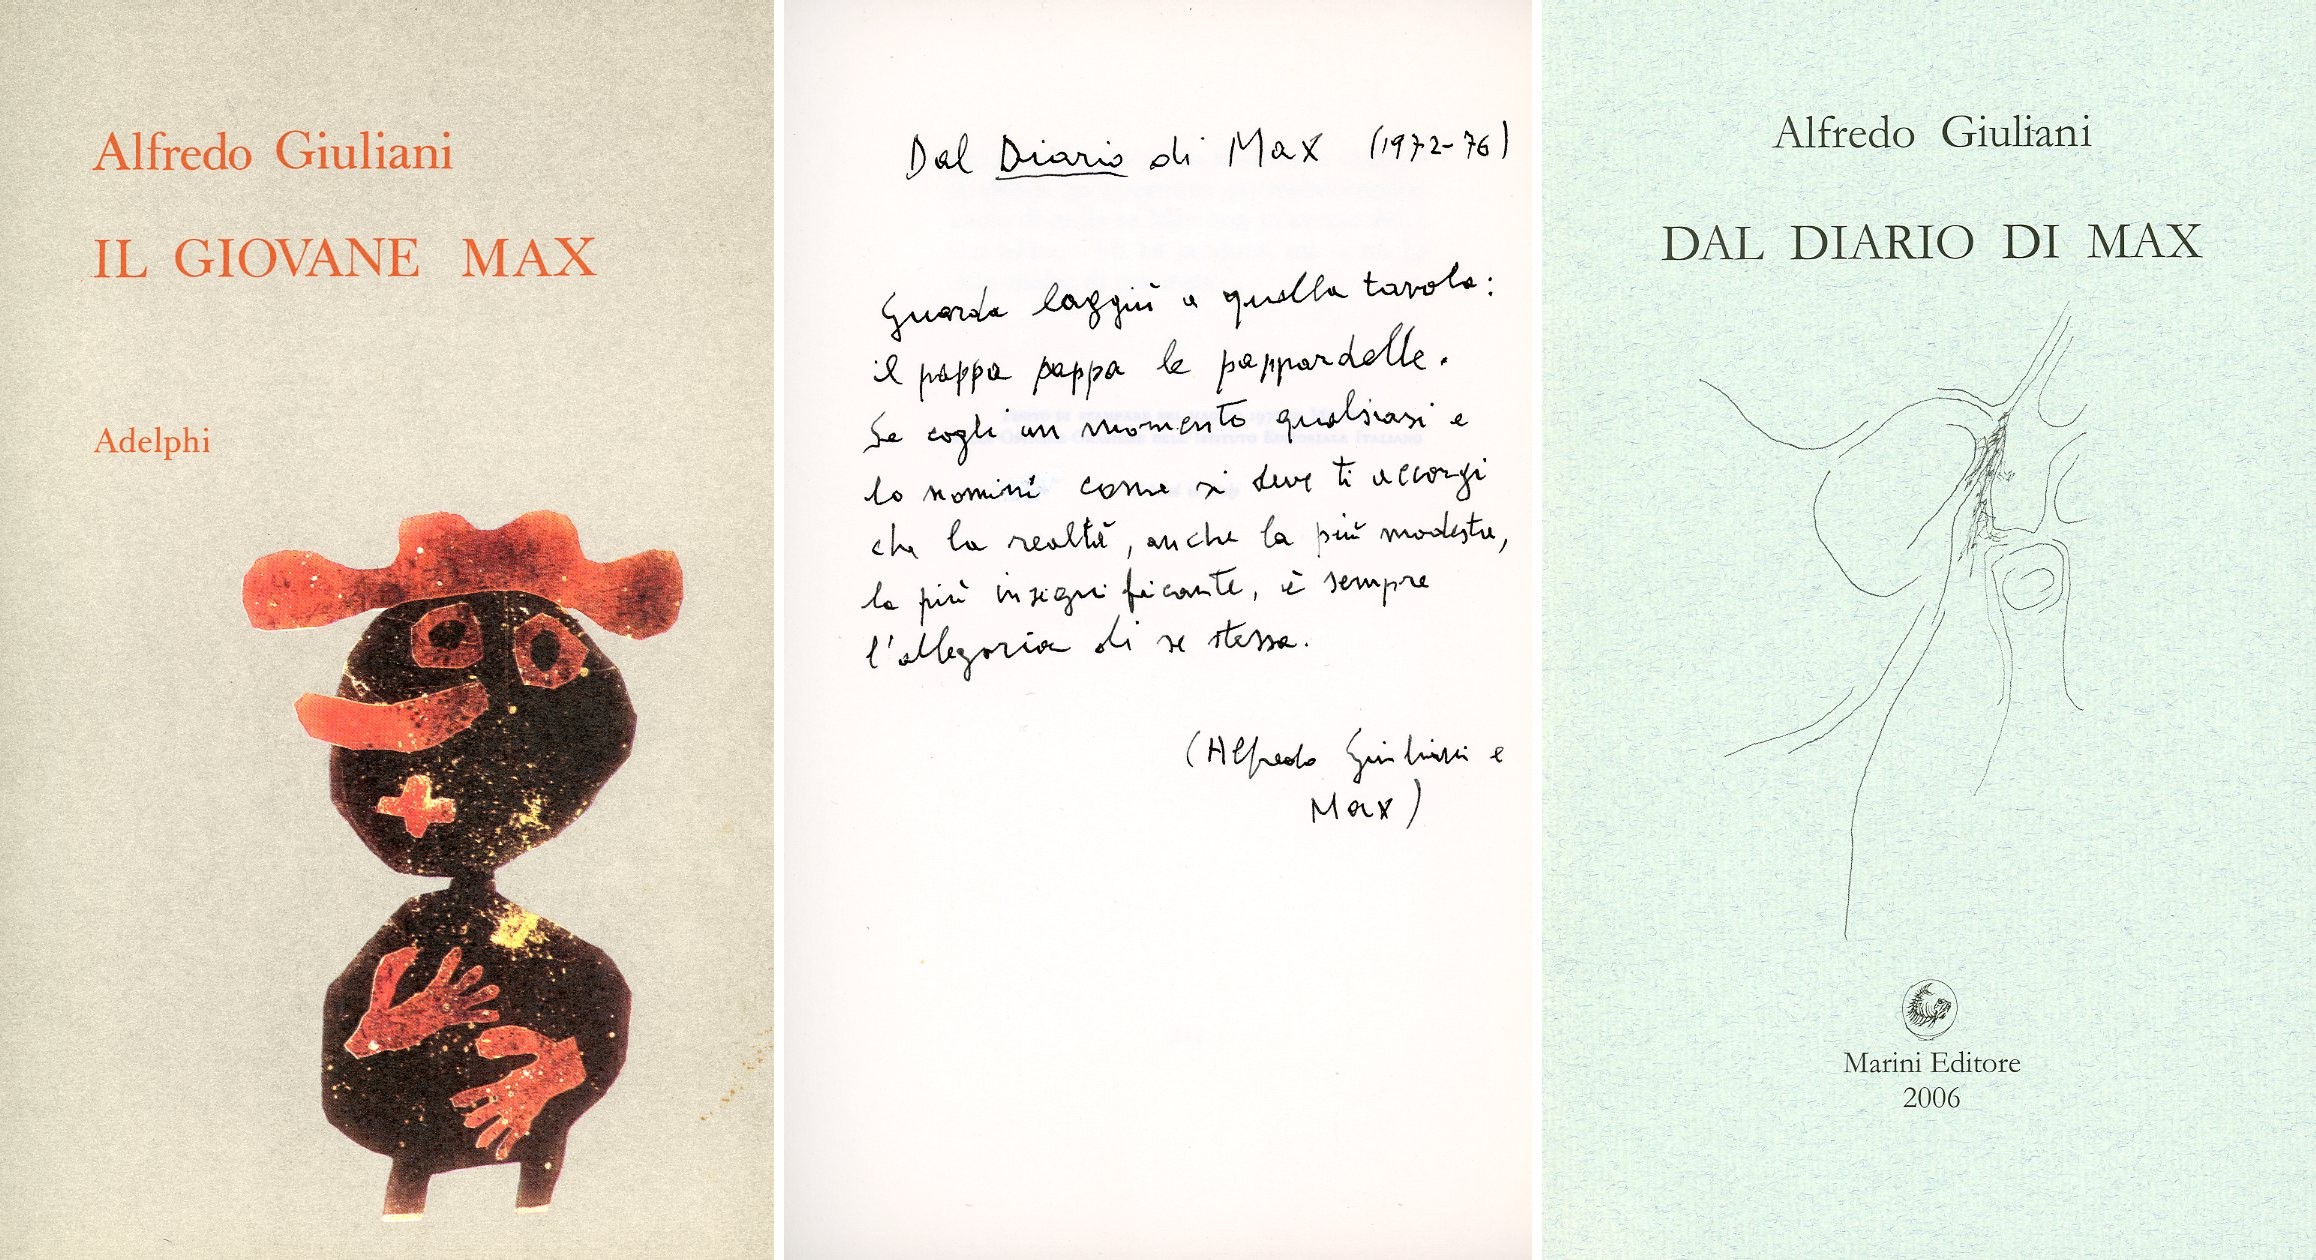 Alfredo Giuliani
IL GIOVANE MAX
Adelphi
Dal Diario di Max (1972-76)
Guarda laggiù a quella tavola:
il pappa pappa le pappardelle.
Se cogli un momento qualsiasi e
lo nomini come si deve ti accorgi
che la realtà, anche la più modesta,
la più insignificante, è sempre
l'allegoria di se stessa.
(Alfredo Giuliani e
Max)
Alfredo Giuliani
DAL DIARIO DI MAX
Marini Editore
2006